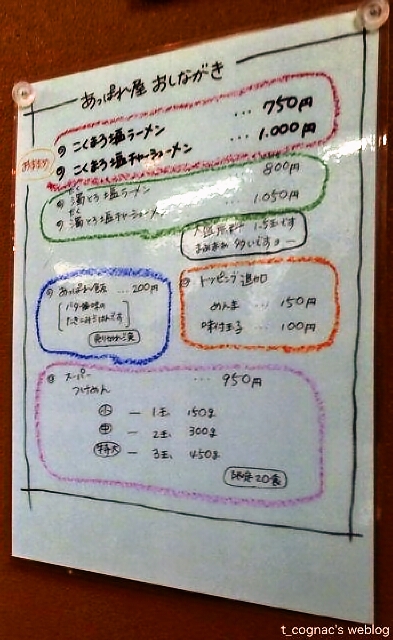 あっぱれ屋 おしながき
おすすめ
こくまろ塩ラーメン … 750円
こくまろ塩チャーシューメン … 1.000円
濁とろ塩ラーメン 800円
濁とろ塩チャーシューメン 1.050円
1.5玉です
あっぱれ飯 … 200円
バター醤油の
たきこみごはんです
売り切れご免
トッピング追加
めんま … 150円
味付玉子 … 100円
スーパー … 950円
つけめん
小 — 1玉 150g
中 — 2玉 300g
特大 — 3玉 450g
限定20食
t_cognac's weblog